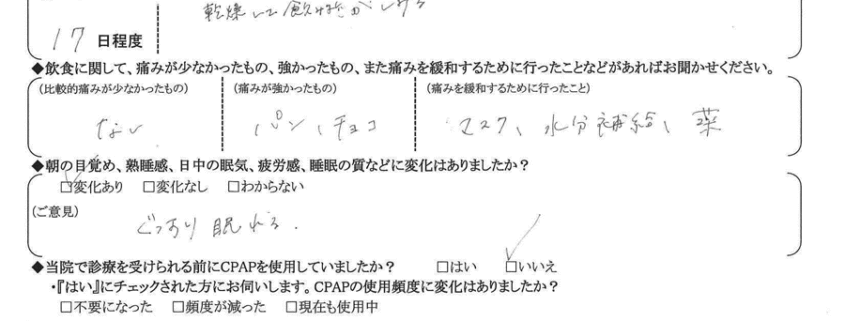 乾燥して飲み物がしみる
17 日程度
◆飲食に関して、痛みが少なかったもの、強かったもの、また痛みを緩和するために行ったことなどがあればお聞かせください。
(比較的痛みが少なかったもの) (痛みが強かったもの) (痛みを緩和するために行ったこと)
ない パン、チョコ マスク、水分補給、薬
◆朝の目覚め、熟睡感、日中の眠気、疲労感、睡眠の質などに変化はありましたか？
☑変化あり □変化なし □わからない
(ご意見)
ぐっすり眠れる.
◆当院で診療を受けられる前にCPAPを使用していましたか？ □はい ☑いいえ
・『はい』にチェックされた方にお伺いします。CPAPの使用頻度に変化はありましたか？
□不要になった □頻度が減った □現在も使用中